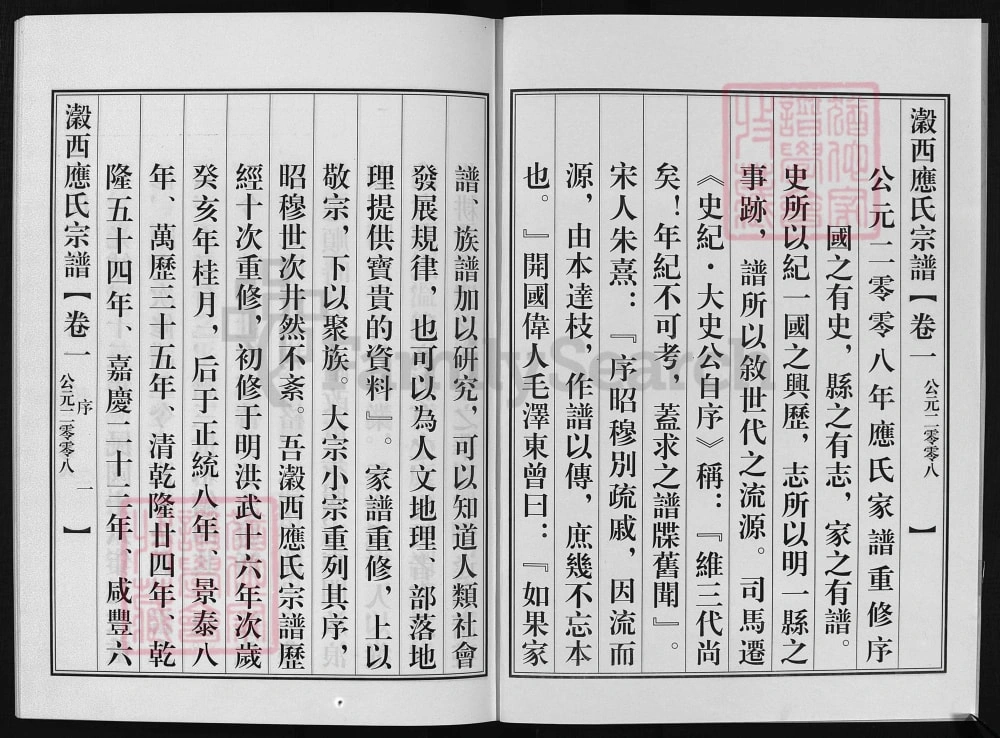 瀔西應氏宗譜【卷一 公元二零零八 】
公元二零零八年應氏家譜重修序
國之有史，縣之有志，家之有譜。
史所以紀一國之興歷，志所以明一縣之
事跡，譜所以敘世代之流源。司馬遷
《史紀·大史公自序》稱：『維三代尚
矣！年紀不可考，蓋求之譜牒舊聞』。
宋人朱熹：『序昭穆別疏戚，因流而
源，由本達枝，作譜以傳，庶幾不忘本
也。』開國偉人毛澤東曾曰：『如果家
譜、族譜加以研究，可以知道人類社會
發展規律，也可以為人文地理、部落地
理提供寶貴的資料』。家譜重修，上以
敬宗，下以聚族。大宗小宗重列其序，
昭穆世次井然不紊。吾瀔西應氏宗譜歷
經十次重修，初修于明洪武十六年次歲
癸亥年桂月，后于正統八年、景泰八
年、萬歷三十五年、清乾隆廿四年、乾
隆五十四年、嘉慶二十三年、咸豐六
瀔西應氏宗譜【卷一 公元二零零八 序 一 】
FamilySearch